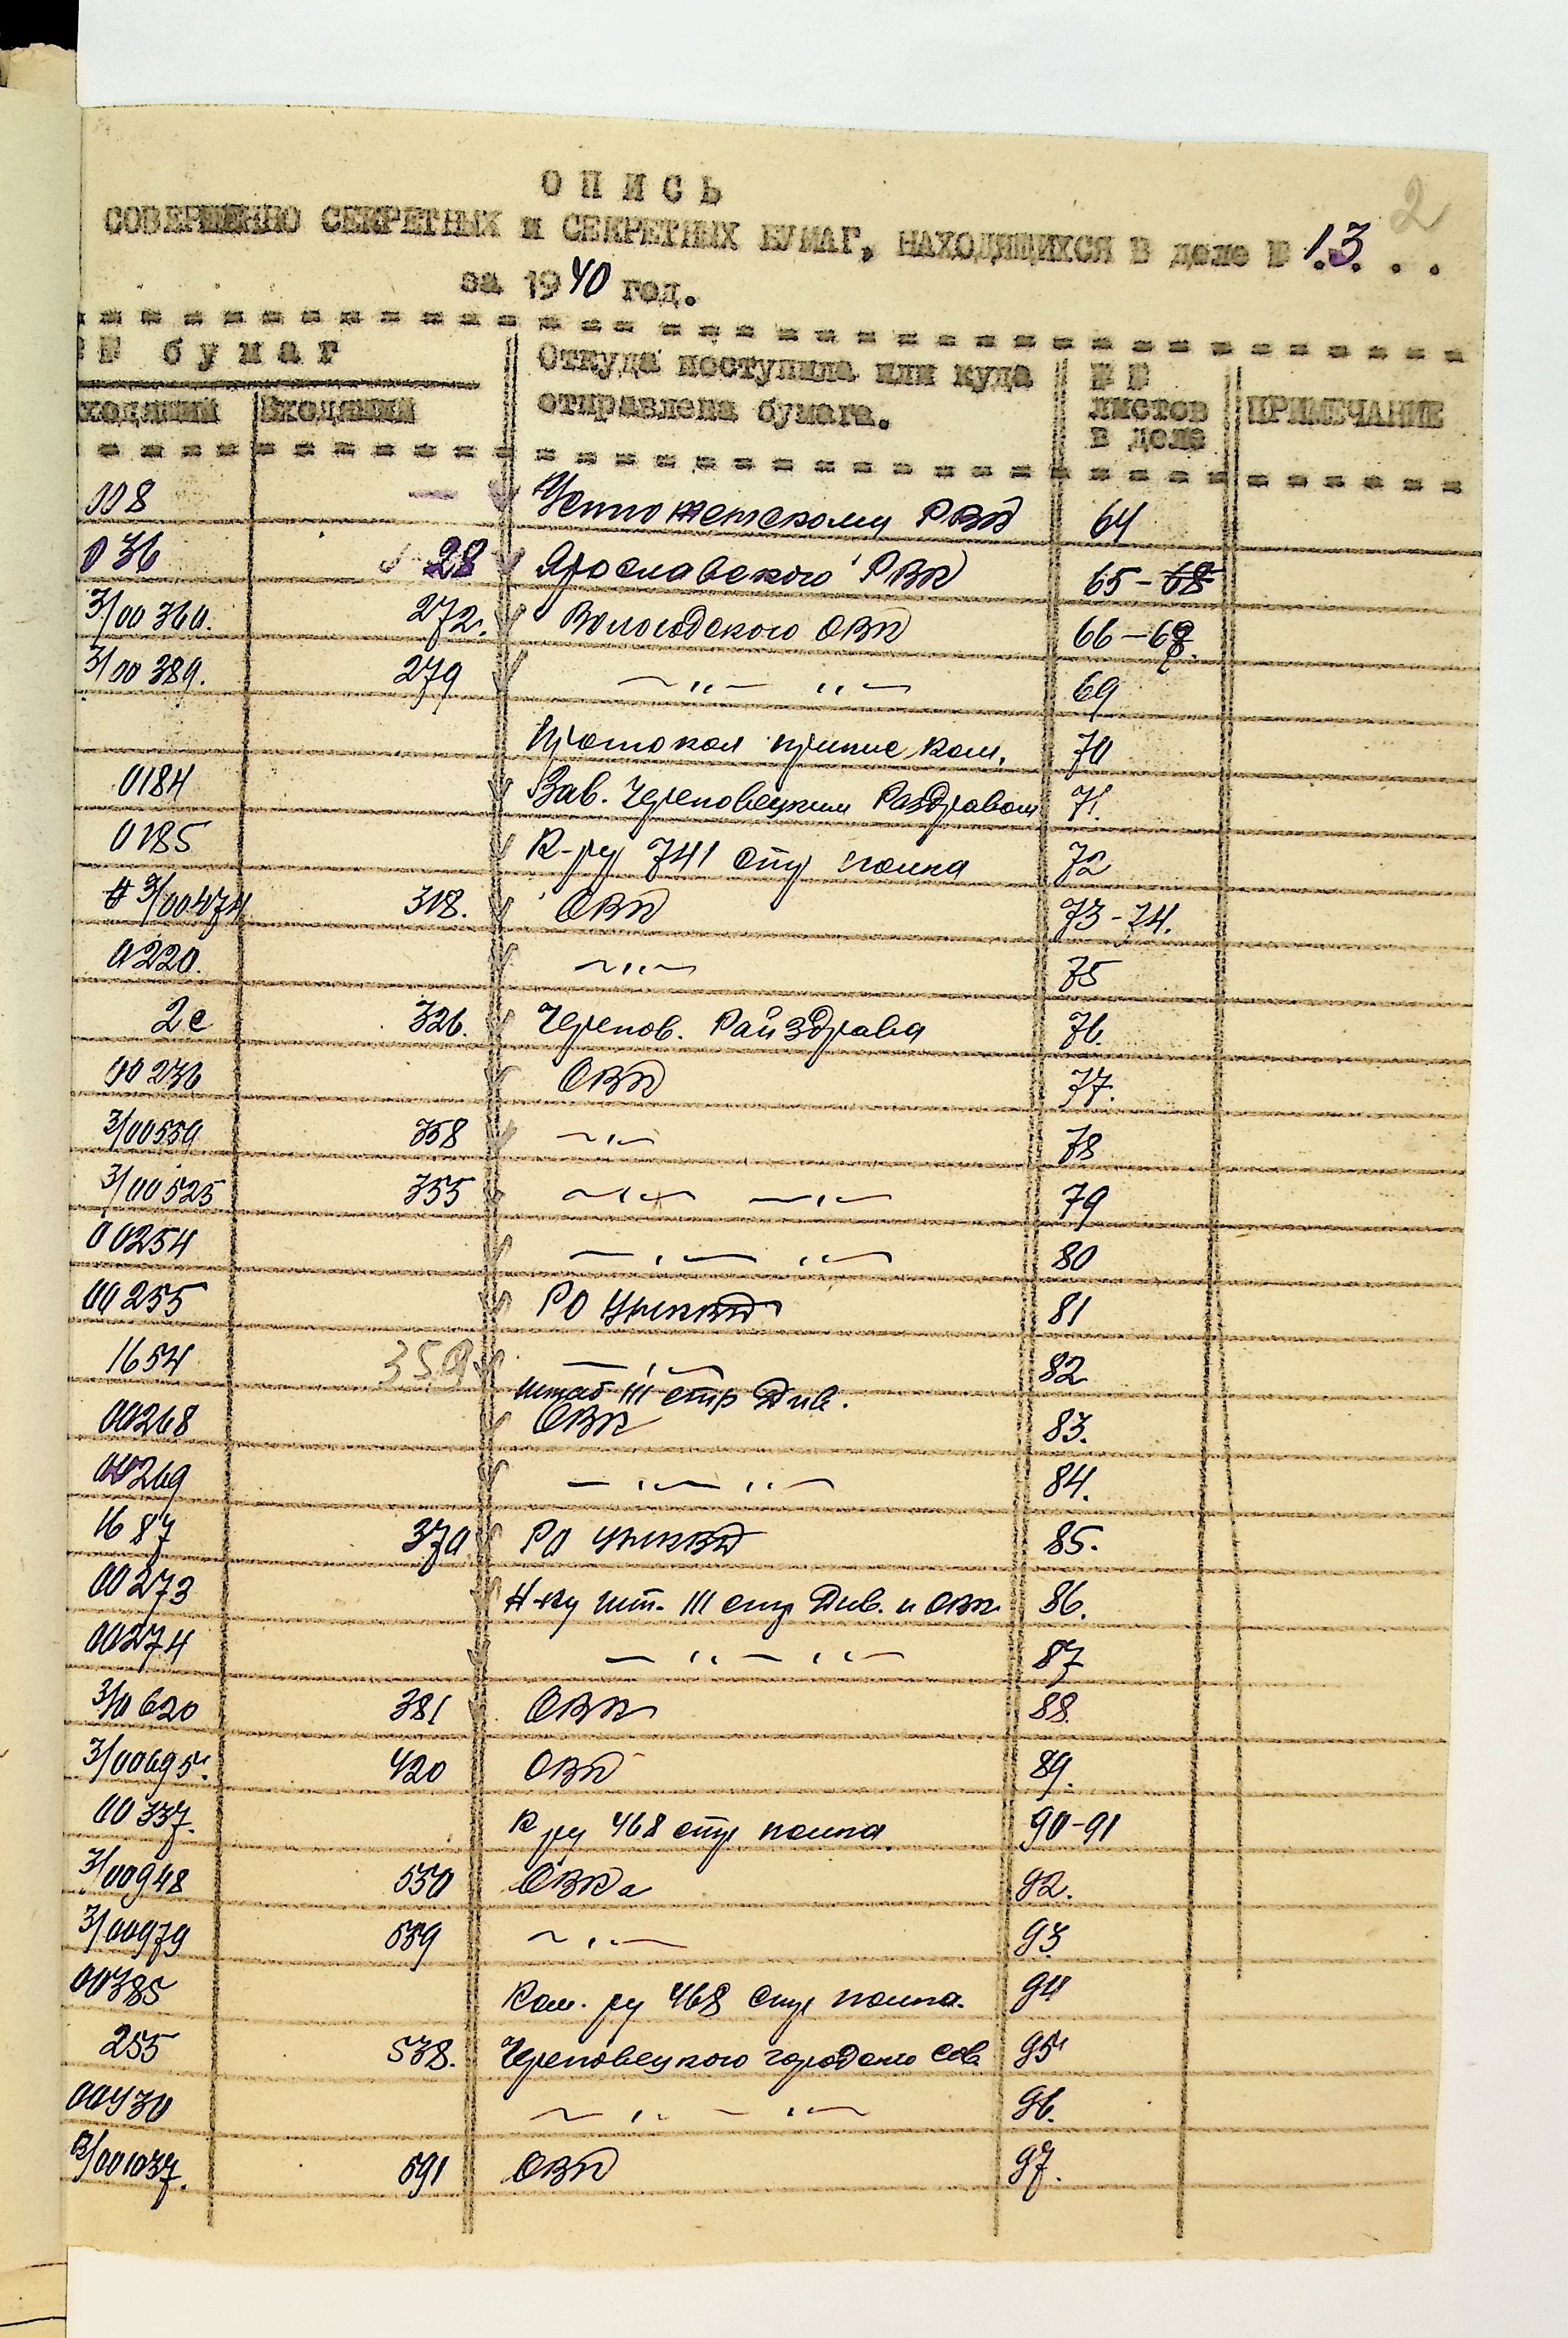 2
О П И С Ь
СОВЕРШЕННО СЕКРЕТНЫХ и СЕКРЕТНЫХ БУМАГ, НАХОДЯЩИХСЯ В деле № 1.3. . .
за 1940 год.
№ бумаг Откуда поступила или куда отправлена бумага. №№ листов в деле ПРИМЕЧАНИЕ
ходящий Входящий
008 — РВК 64
036 28 Ярославского РВК 65-68
3/00360. 272. Вологодского ОВК 66-68.
3/00389. 279 —〃— 〃— 69
Протокол припис. ком. 70
0184 Зав. Череповецким Райздравом 71.
0185 К-ру 741 стр полка 72
3/00474 318. ОВК 73-74.
0220. —〃— 75
2с 326. Черепов. Райздрава 76.
00236 ОВК 77.
3/00559 358 —〃— 78
3/00525 355 —〃— —〃— 79
00254 —〃— 〃— 80
00255 РО УНКВД 81
1654 359 —〃— 82
штаб 111 стр Див.
00268 ОВК 83.
00269 —〃— 〃— 84.
1687 370 РО УНКВД 85.
00273 Н-ку шт. 111 стр Див. и ОВК 86.
00274 —〃— 〃— 87
3/0620 381 ОВК 88.
3/00695. 420 ОВК 89.
00337. К ру 468 стр полка 90-91
3/00948 530 ОВКа 92.
3/00979 539 —〃— 93
00385 Ком. ру 468 стр полка. 94
255 538. Череповецкого городского сов. 95
00430 —〃— 〃— 96.
3/001037. 591 ОВК 97.